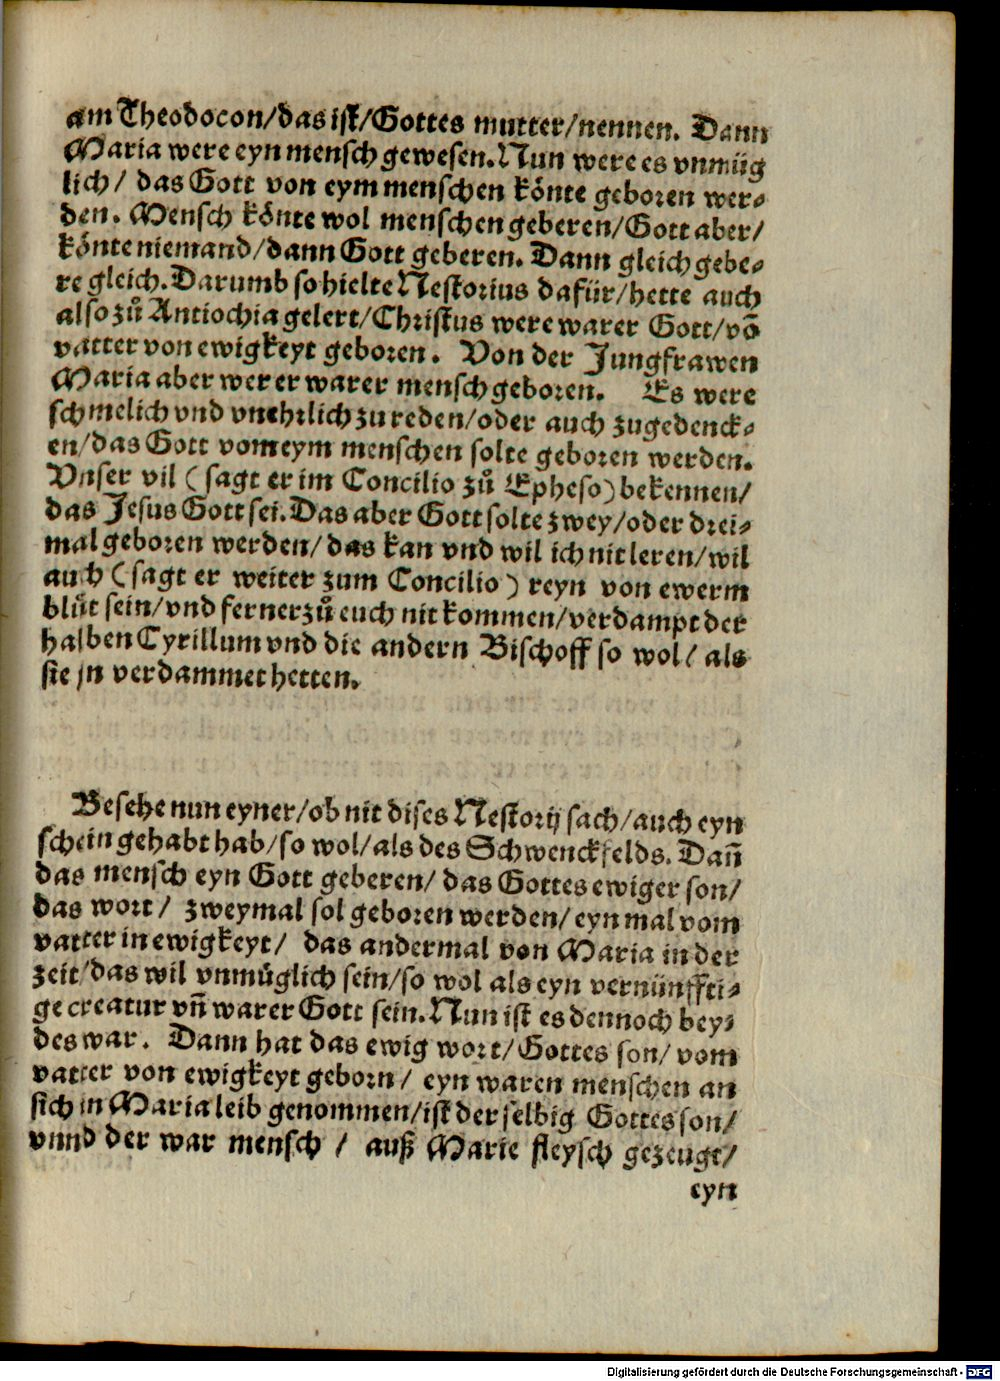 am Theodocon/das ist/Gottes mutter/nennen. Dann
Maria were eyn mensch gewesen. Nun were es vnmüg
lich/ das Gott von eym menschen könte geboren wer⸗
den. Mensch könte wol menschen geberen/Gott aber/
könte niemand/dann Gott geberen. Dann gleich gebe⸗
re gleich. Darumb so hielte Nestorius dafür/hette auch
also zů Antiochia gelert/Christus were warer Gott/võ
vatter von ewigkeyt geboren. Von der Jungfrawen
Maria aber wer er warer mensch geboren. Es were
schmelich vnd vnehrlich zu reden/oder auch zugedenck⸗
en/das Gott vom eym menschen solte geboren werden.
Vnser vil (sagt er im Concilio zů Epheso) bekennen/
das Jesus Gott sei. Das aber Gott solte zwey/oder drei⸗
mal geboren werden/das kan vnd wil ich nit leren/wil
auch (sagt er weiter zum Concilio) reyn von ewerm
blůt sein/vnd ferner zů euch nit kommen/verdampt der
halben Cyrillum vnd die andern Bischoff so wol/ als
sie jn verdammet hetten.
Besehe nun eyner/ob nit dises Nestorij sach/auch eyn
schein gehabt hab/so wol/als des Schwenckfelds. Dañ
das mensch eyn Gott geberen/das Gottes ewiger son/
das wort/ zweymal sol geboren werden/eyn mal vom
vatter in ewigkeyt/ das andermal von Maria in der
zeit/das wil vnmůglich sein/so wol als eyn vernünffti⸗
ge creatur vñ warer Gott sein. Nun ist es dennoch bey⸗
des war. Dann hat das ewig wort/Gottes son/ vom
vatter von ewigkeyt geborn/ eyn waren menschen an
sich in Maria leib genommen/ist der selbig Gottes son/
vnnd der war mensch / auß Marie fleysch gezeugt/
eyn
Digitalisierung gefördert durch die Deutsche Forschungsgemeinschaft - DFG